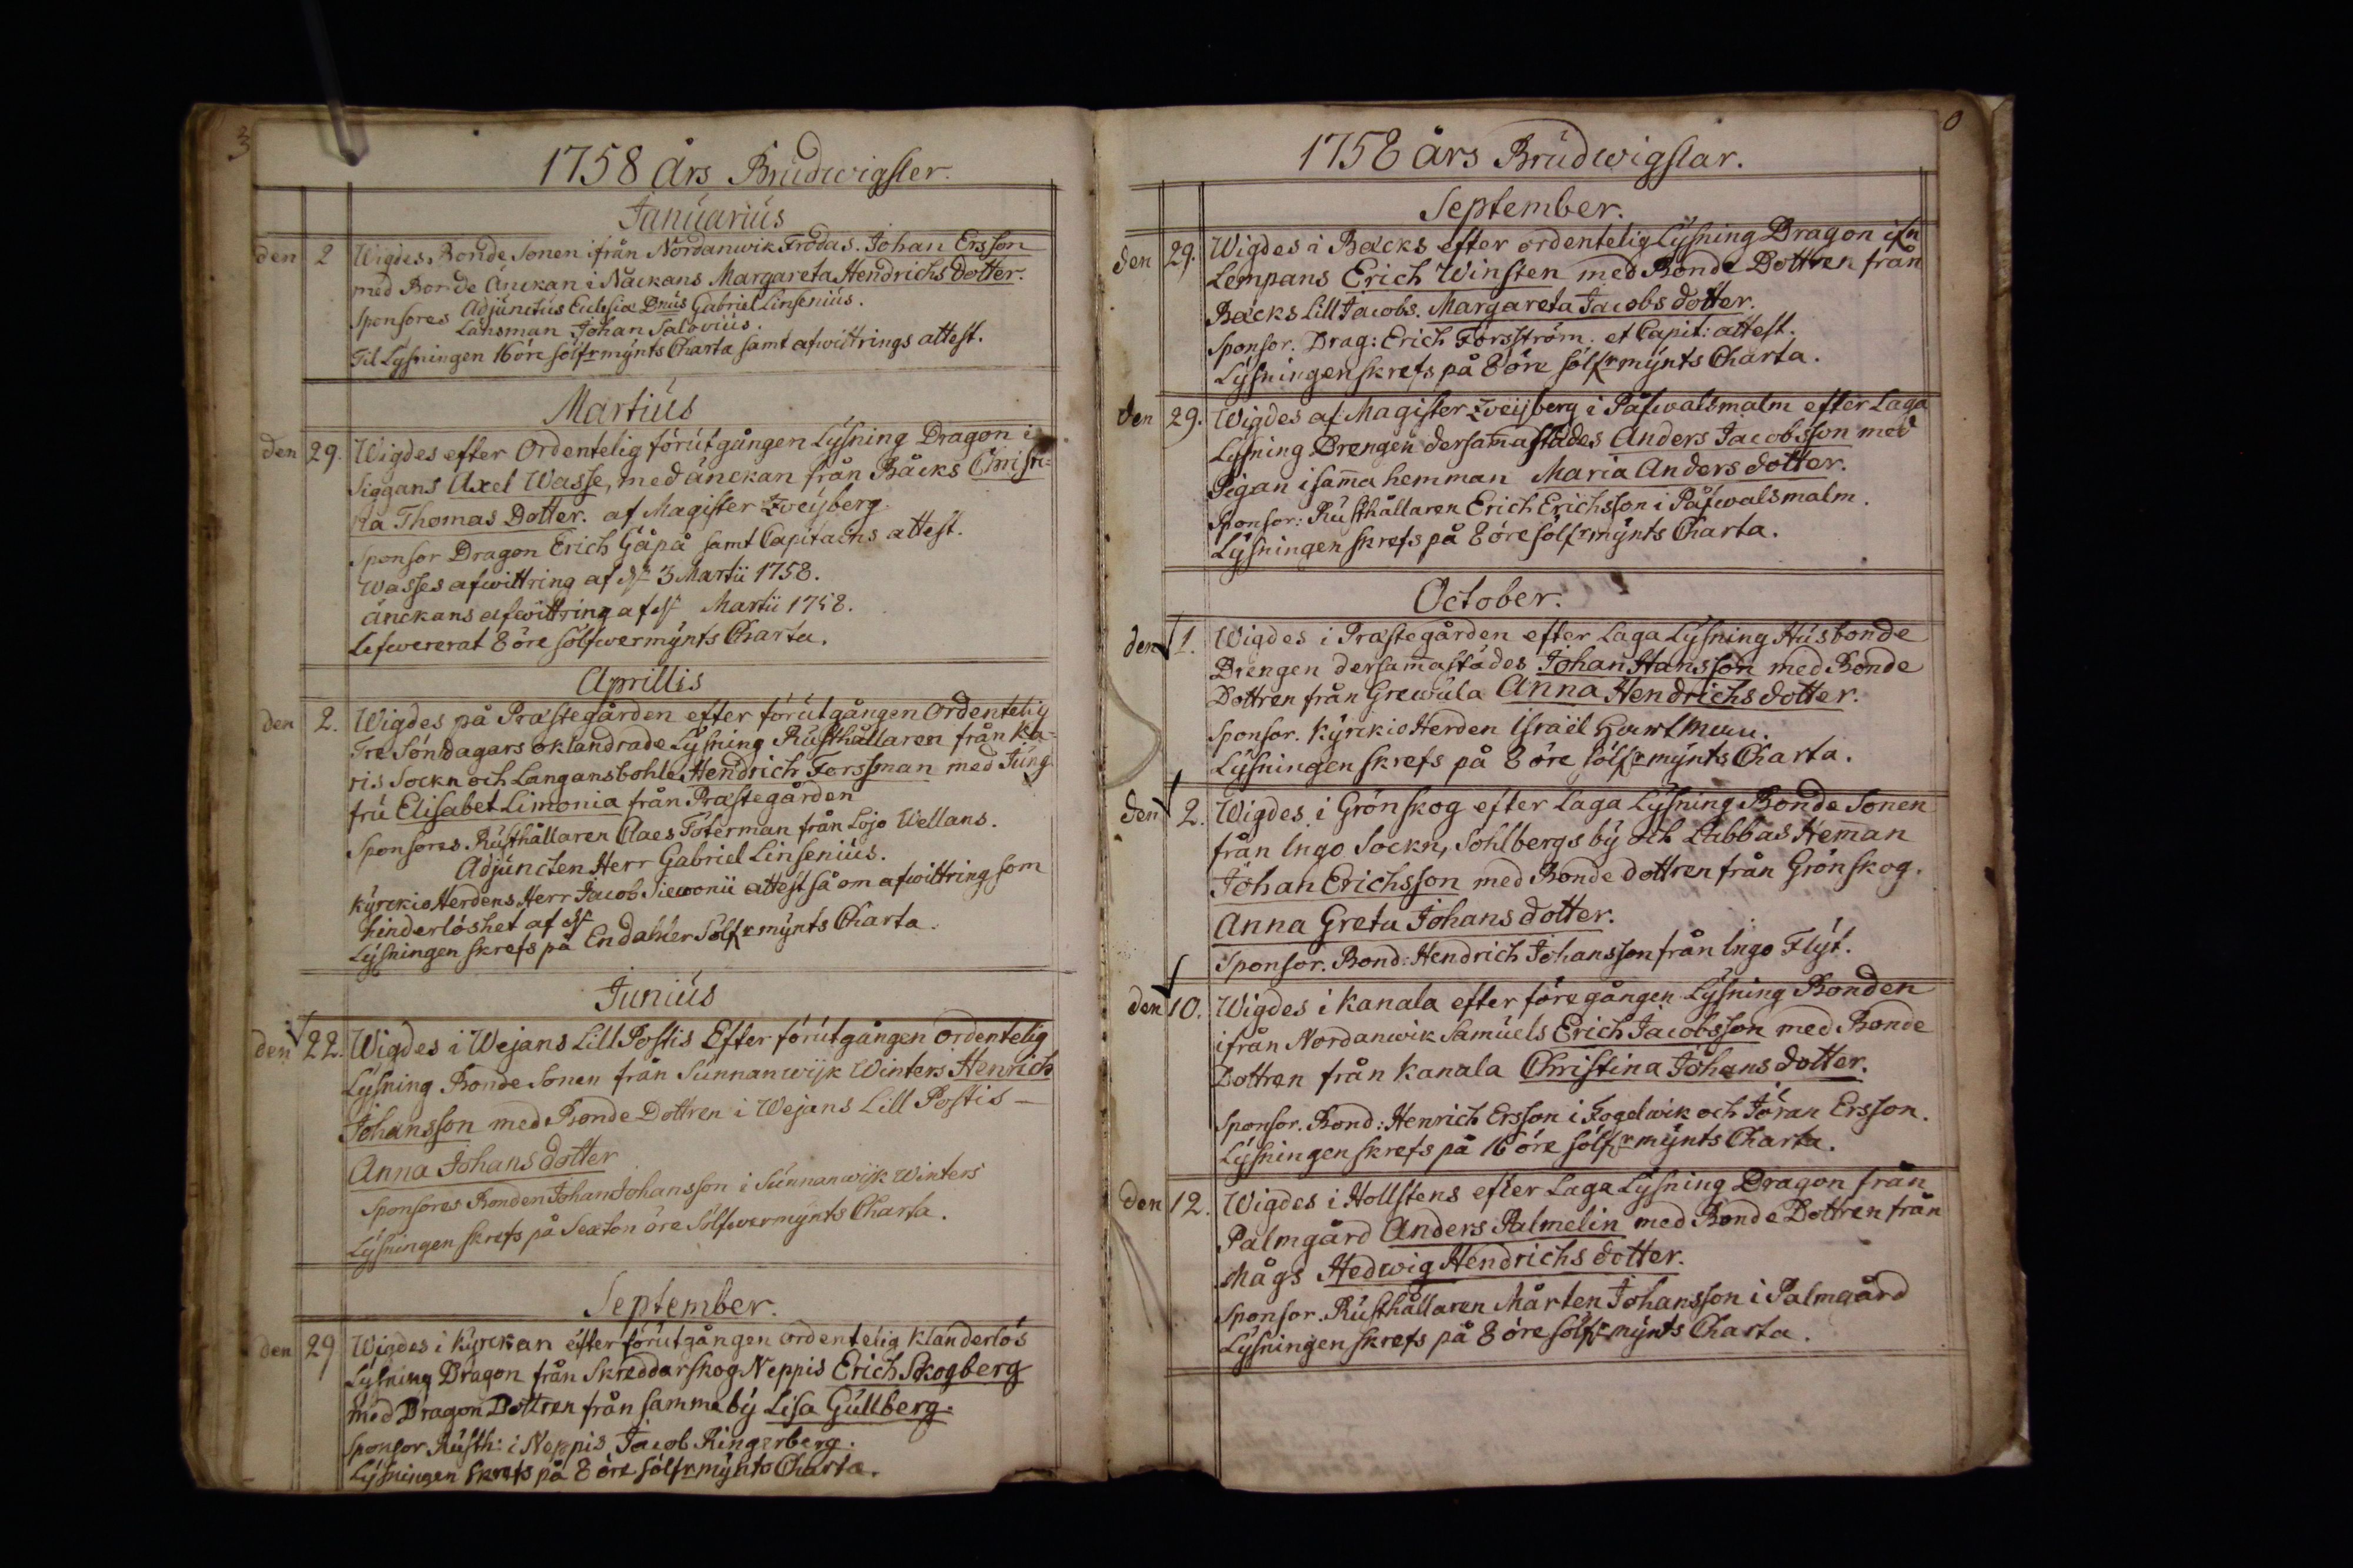 3
1758 Års Brudwigsler.
Januarius
den 2 Wigdes Bonde Sonen ifrån Nordanwik Frodas. Johan Ersson
med Bonde Änckan i Näckans Margareta Hendrichs Dotter.
Sponsores Adjunctus Eclesiæ Dnus Gabriel Linsenius.
Länsman Johan Salovius.
Til Lysningen 16 öre sölfr mÿnts Charta samt afwittrings attest.
Martius
den 29. Wigdes efter Ordentelig förutgången Lysning Dragon i
Siggans Axel Wasse, med änckan från Bäcks Christi=
na Thomas Dotter. af Magister Zweÿberg.
Sponsor Dragon Erich Gåpå samt Capitains attest.
Wasses afwittring af d. 3 Martii 1758.
änckans afwittring af d. Martii 1758.
Lefwererat 8 öre sölfwermÿnts Charta.
Aprillis
den 2. Wigdes på Præstegården efter förutgången Ordentelig
Tre Söndagars oklandrade Lysning Rusthållaren från Ka=
ris Sockn och Langansbohle Hendrich Forssman med Jung
fru Elisabet Limonia från Præstegården
Sponsores. Rusthållaren Claes Föterman från Lojo Wellans.
Adjuncten Herr Gabriel Linsenius.
KÿrckioHerdens Herr Jacob Sicwonii attest så om afwittring som
hinderlöshet af d.
Lysningen skrefs på En daler Sölfr mÿnts Charta.
Junius
den 22. Wigdes i Wejans Lill Postis Efter förutgången ordentelig
Lysning Bonde Sonen från Sunnanwijk Winters Henrich
Johansson med Bonde Dottren i Wejans Lill Postis —
Anna Johans dotter
Sponsores Bonden Johan Johansson i Sunnanwijk Winters
Lysningen skrefs på Sexton öre Sölfwermÿnts Charta.
September.
den 29 Wigdes i Kÿrckan efter förutgången ordentelig klanderlös
Lysning Dragon från Skreddarskog Neppis Erich Skogberg
med Dragon Dottren från samma bÿ Lisa Gullberg.
Sponsor Rusth: i Neppis Jacob Ringerberg.
Lysningen skrefs på 8 öre sölfr mÿnts Charta.
0
1758 års Brudwigslar.
September.
den 29. Wigdes i Bäcks efter ordentelig Lysning Dragon ifn
Lempans Erich Winsten med Bonde Dottren från
Bäcks Lill Jacobs. Margareta Jacobs dotter.
Sponsor. Drag: Erich Forsström. et Capit: attest.
Lysningen skrefs på 8 öre sölfr mÿnts Charta.
den 29. Wigdes af Magister Zweÿberg i Påfwalsmalm efter Laga
Lysning Drengen dersam̅astädes Anders Jacobsson med
Pigan i sam̅a hemman Maria Anders dotter.
Sponsor: Rusthållaren Erich Erichsson i Påfwalsmalm.
Lysningen skrefs på 8 öre sölfr mÿnts Charta.
October.
den 1. Wigdes i Præstegården efter Laga Lysning Husbonde
Drengen dersam̅astädes Johan Hansson med Bonde
Dottren från Grewula Anna Hendrichs dotter.
Sponsor. KÿrckioHerden Israël Hartman.
Lysningen skrefs på 8 öre sölfr mÿnts Charta.
den 2. Wigdes i Grönskog efter Laga Lysning Bonde Sonen
från Ingo Sockn, Sohlbergs bÿ och Labbas Hem̅an
Johan Erichsson med Bonde dottren från Grönskog.
Anna Greta Johans dotter.
Sponsor. Bond: Hendrich Johansson från Ingo Flÿt.
den 10. Wigdes i Kanala efter föregången Lysning Bonden
ifrån Nordanwik Samuels Erich Jacobsson med Bonde
Dottren från Kanala Christina Johans dotter.
Sponsor. Bond: Henrich Ersson i Fogelwik och Jöran Ersson.
Lysningen skrefs på 16 öre sölfr mÿnts Charta.
den 12. Wigdes i Hollstens efter Laga Lysning Dragon från
Palmgård Anders Palmelin med Bonde Dottren från
Mågs Hedwig Hendrichs dotter.
Sponsor. Rusthållaren Mårten Johansson i Palmgård
Lysningen skrefs på 8 öre sölfr mÿnts Charta.